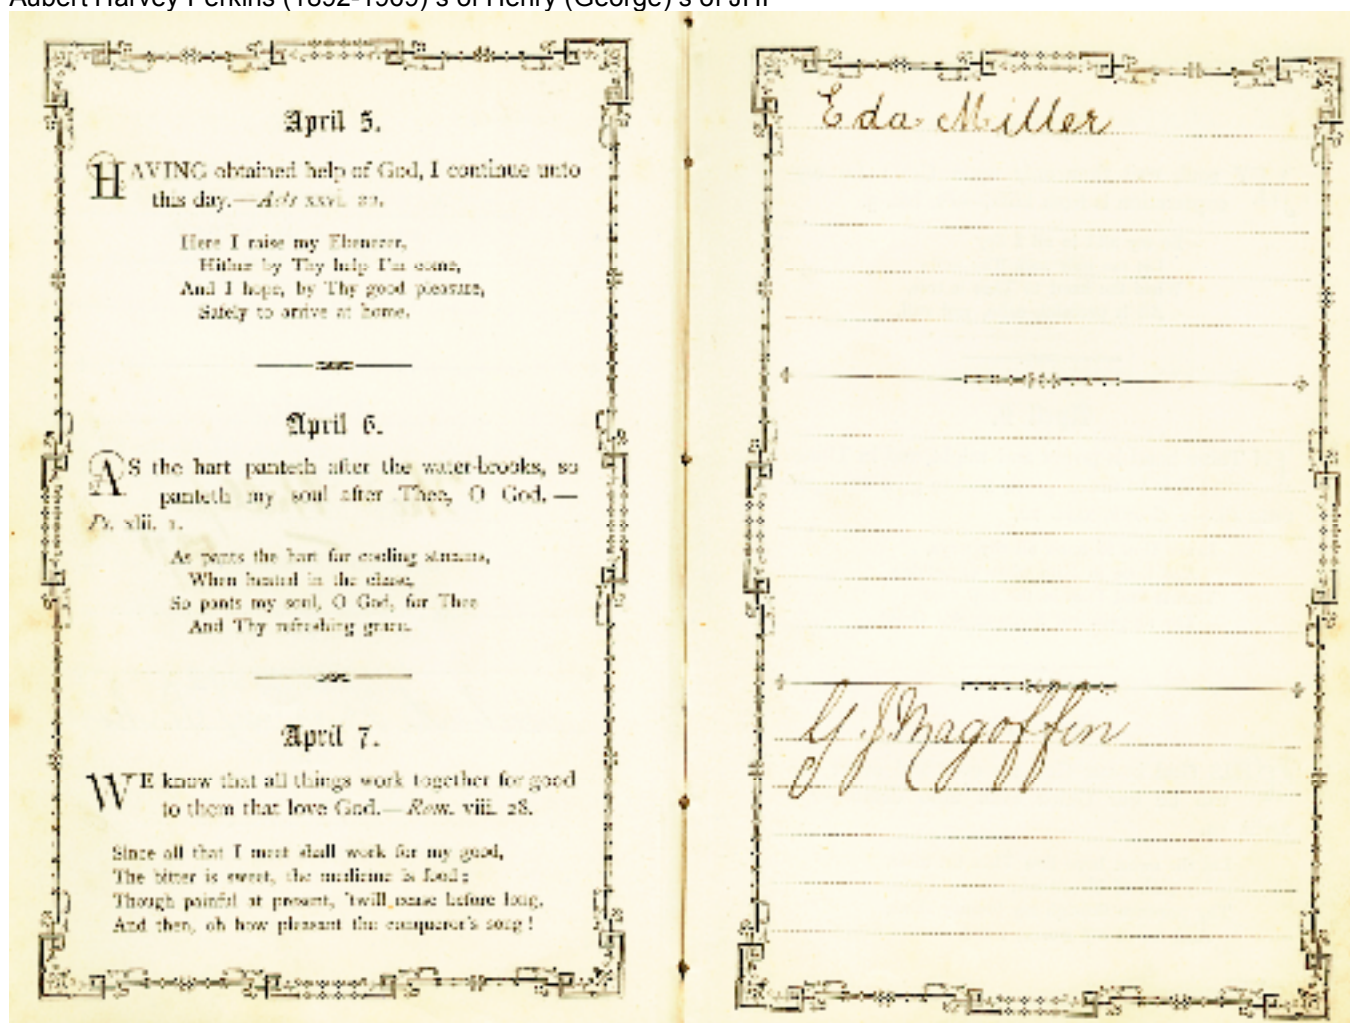 Aubert Harvey Perkins (1892-1969) s of Henry (George) s of JHP
April 5.
HAVING obtained help of God, I continue unto
this day.—Acts xxvi. 22.
Here I raise my Ebenezer,
Hither by Thy help I'm come,
And I hope, by Thy good pleasure,
Safely to arrive at home.
April 6.
AS the hart panteth after the water-brooks, so
panteth my soul after Thee, O God.—
Ps. xlii. 1.
As pants the hart for cooling streams,
When heated in the chase,
So pants my soul, O God, for Thee
And Thy refreshing grace.
April 7.
WE know that all things work together for good
to them that love God.—Rom. viii. 28.
Since all that I meet shall work for my good,
The bitter is sweet, the medicine is food;
Though painful at present, 'twill cease before long,
And then, oh how pleasant the conqueror's song!
Eda Miller
G. J Magoffin